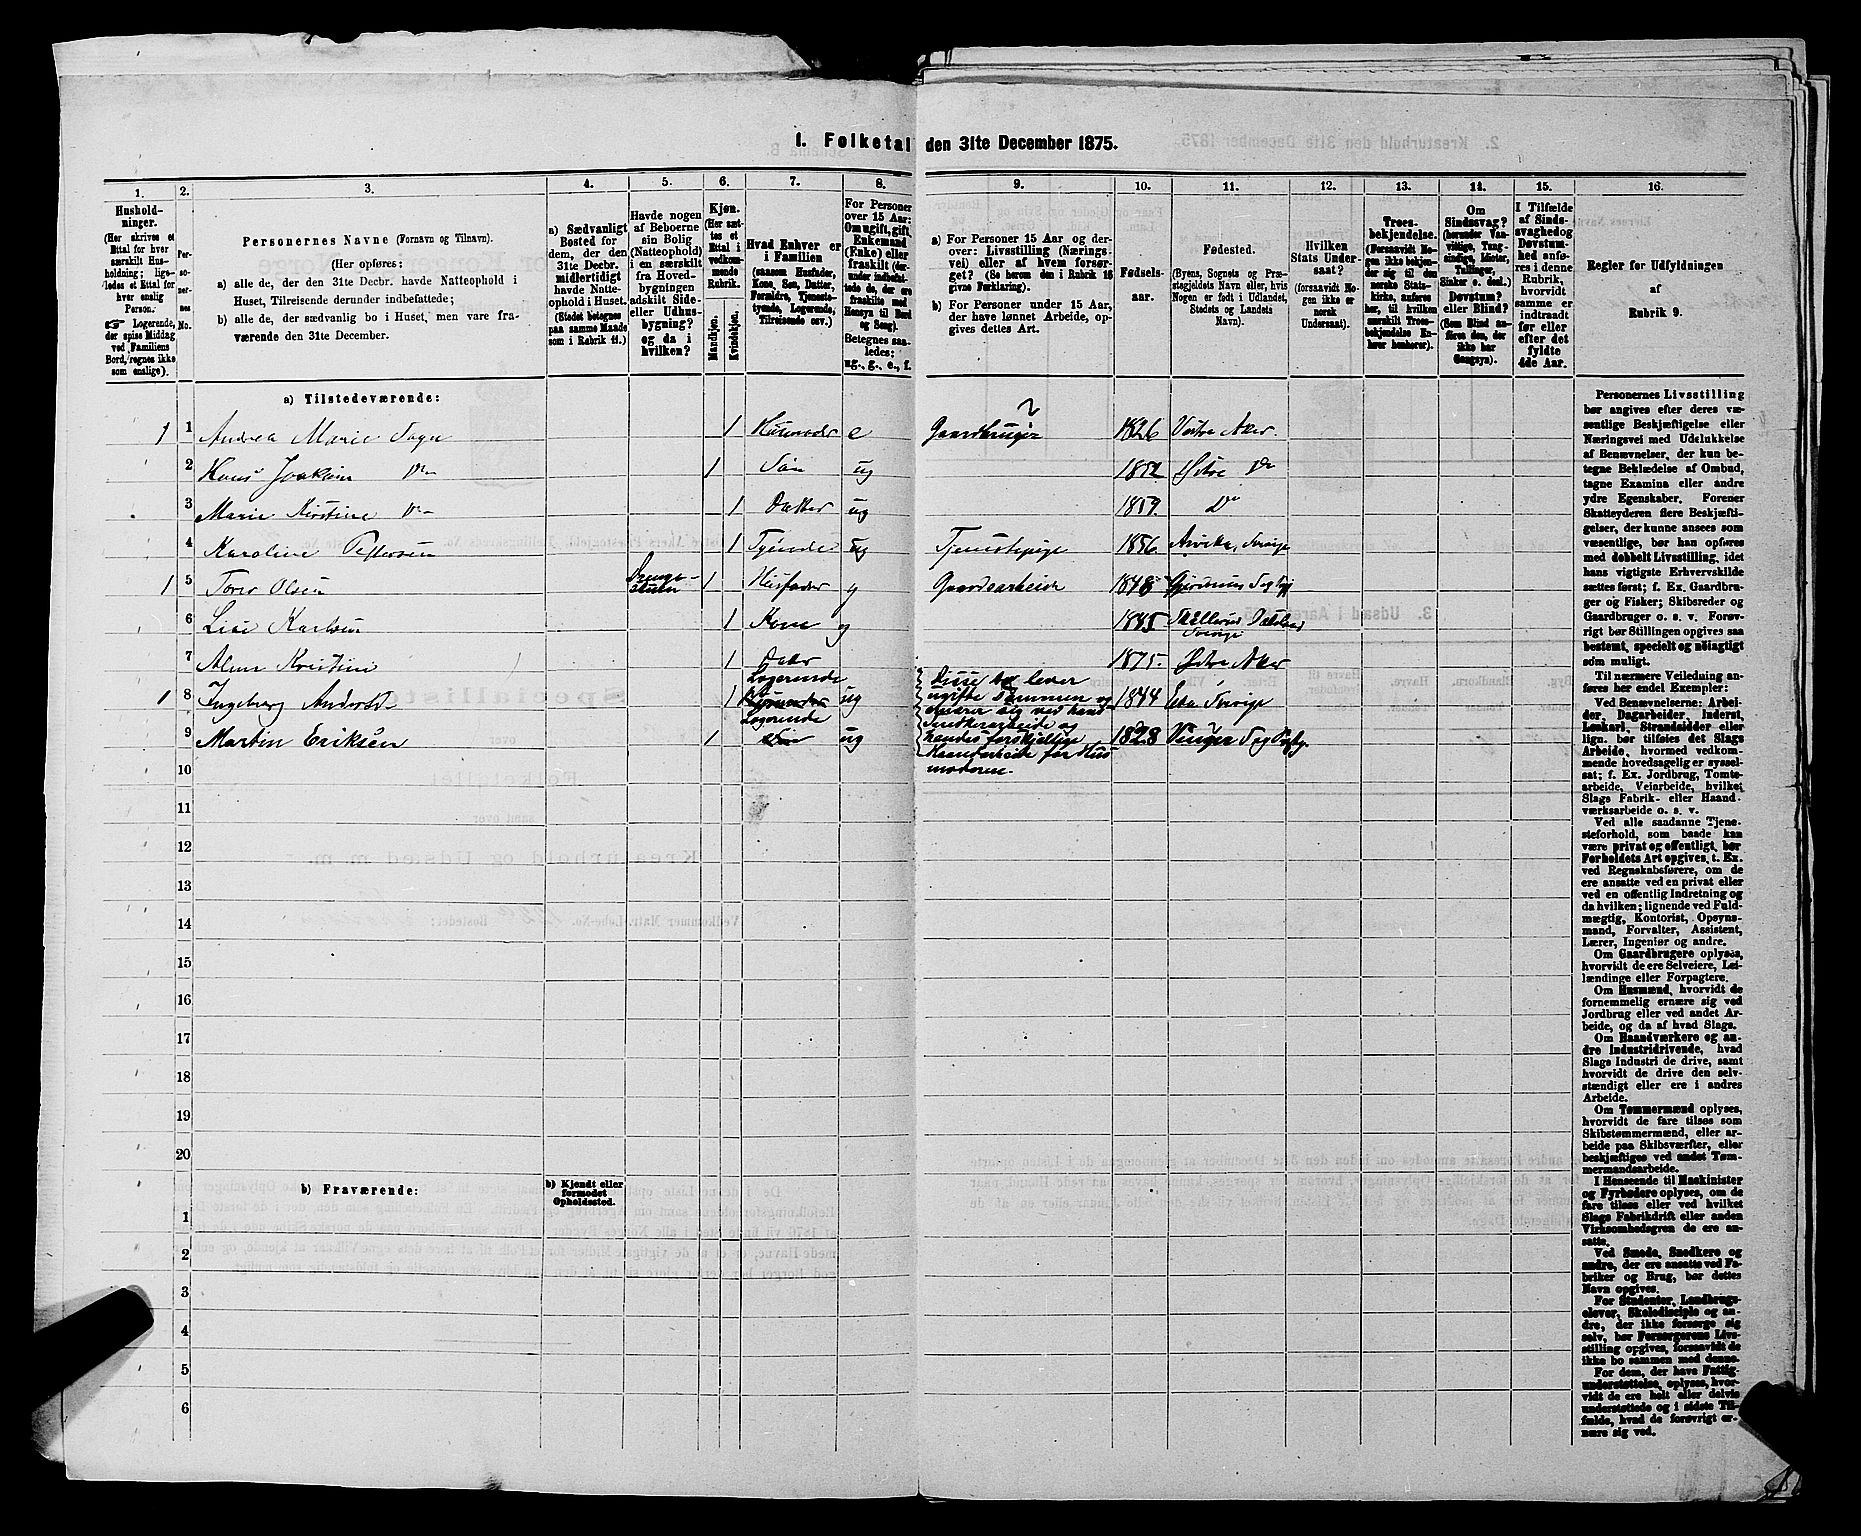 1. Folketal den 31te December 1875.
1. 2. 3. 4. 5. 6. 7. 8. 9. 10. 11. 12. 13. 14. 15. 16.
Hushold-
ninger.
(Her skrives et
Ettal for hver
særskilt Hus-
holdning; lige-
ledes et Ettal for
hver enslig
Person.
☞ Logerende,
der spise Middag
ved Familiens
Bord, regnes ikke
som enslige).
Per-
so-
ner-
nes
No.
Personernes Navne (Fornavn og Tilnavn).
(Her opføres:
a) alle de, der den 31te Decbr. havde Natteophold i
Huset, Tilreisende derunder indbefattede;
b) alle de, der sædvanlig bo i Huset, men vare fra-
værende den 31te December.
a) Sædvanligt
Bosted for
dem, der den
31te Decbr.
midlertidigt
havde Natte-
ophold i Huset.
(Stedet betegnes
paa samme Maade
som i Rubrik 11.)
Havde nogen
af Beboerne
sin Bolig
(Natteophold)
i en særskilt
fra Hoved-
bygningen
adskilt Side-
eller Udhus-
bygning?
og da i
hvilken?
Kjøn.
(Her sæt-
tes et
Ettal i
vedkom-
mende
Rubrik.
Mandkjøn.
Kvindekjøn.
Hvad Enhver er
i Familien
(saasom Husfader,
Kone, Søn, Datter,
Forældre, Tjeneste-
tyende, Logerende,
Tilreisende osv.)
For Personer
over 15 Aar:
Om ugift, gift,
Enkemand
(Enke) eller
fraskilt (der-
under indbefat-
tede de, der ere
fraskilte med
Hensyn til Bord
og Seng).
Betegnes saa-
ledes:
ug., g., e., f.
a) For Personer 15 Aar og der-
over: Livsstilling (Nærings-
vei) eller af hvem forsør-
get? (Se herom den i Rubrik 16
givne Forklaring).
b) For Personer under 15 Aar,
der have lønnet Arbeide, op-
gives dettes Art.
Fødsels-
aar.
Fødested.
(Byens, Sognets og Præ-
stegjeldets Navn eller, hvis
Nogen er født i Udlandet,
Stedets og Landets
Navn).
Hvilken
Stats Under-
saat?
(forsaavidt No-
gen ikke er
norsk
Undersaat).
Troes-
bekjendelse.
(Forsaavidt No-
gen ikke bekjen-
der sig til den
norske Stats-
kirke, anføres
her, til hvilken
særskilt Troes-
bekjendelse En-
hver henhører).
Om
Sindssvag?
(herunder Van-
vittige, Tung-
sindige, Idioter,
Tullinger,
Sinker o. desl.)
Døvstum?
eller Blind?
(Som Blind an-
føres den, der
ikke har
Gangsyn).
I Tilfælde
af Sinds-
svaghed og
Døvstum-
hed anfø-
res i denne
Rubrik,
hvorvidt
samme er
indtraadt
før eller
efter det
fyldte
4de Aar.
Regler for Udfyldningen
af
Rubrik 9.
a) Tilstedeværende:
1 1 Andrea Marie 1 Husmoder e Gaardbruger 1826 Vestre Aker.
2 Hans Joakim Do 1 Søn ug 1852 Østre Do
3 Marie Kirstine Do 1 Datter ug 1859 Do
4 Karoline Pettersen 1 Tyende ug Tjenestepige 1856 Arvika, Sverige
1 5 Torer Olsen 1 Husfader g Gaardsarbeide 1848
6 Lise Karlsen 1 Kone g 1845 Sverige
7 Kristine 1 Datter 1875 Østre Aker
1 8 Ingeborg Andersd. 1 Logerende ug 1844 Eda Sverige
9 Martin Eriksen 1 Logerende ug 1828 Vinger
Disse lever
ugifte sammen og
nærer sig ved
og
handes forskjellige
Haandarbeide for Hus
moderen.
10
11
12
13
14
15
16
17
18
19
20
b) Fraværende:
b) Kjendt eller
formodet
Opholdssted.
1
2
3
4
5
6
Personernes Livsstilling
bør angives efter deres væ-
sentlige Beskjæftigelse eller
Næringsvei med Udelukkelse
af Benævnelser, der kun be-
tegne Beklædelse af Ombud,
tagne Examina eller andre
ydre Egenskaber. Forener
Skatteyderen flere Beskjæfti-
gelser, der kunne ansees som
væsentlige, bør han opføres
med dobbelt Livsstilling, idet
hans vigtigste Erhvervskilde
sættes først; f. Ex. Gaardbru-
ger og Fisker; Skibsreder og
Gaardbruger o. s. v. Forøv-
rigt bør Stillingen opgives saa
bestemt, specielt og nøiagtigt
som muligt.
Til nærmere Veiledning an-
føres her endel Exempler:
Ved Benævnelserne: Arbei-
der, Dagarbeider, Inderst,
Løskarl, Strandsidder eller
lign. bør tilføies det Slags
Arbeide, hvormed vedkom-
mende hovedsagelig er syssel-
sat; f. Ex. Jordbrug, Tomte-
arbeide, Veiarbeide, hvilket
Slags Fabrik- eller Haand-
værksarbeide o. s. v.
Ved alle saadanne Tjene-
steforhold, som baade kan
være privat og offentligt, bør
Forholdets Art opgives, t. Ex.
ved Regnskabsførere, om de
ere ansatte ved en privat eller
ved en offentlig Indretning og
da hvilken; lignende ved Fuld-
mægtig, Kontorist, Opsyns-
mand, Forvalter, Assistent,
Lærer, Ingeniør og andre.
Om Gaardbrugere oplyses,
hvorvidt de ere Selveiere, Lei-
lændinge eller Forpagtere.
Om Husmænd, hvorvidt de
fornemmelig ernære sig ved
Jordbrug eller ved andet Ar-
beide, og da af hvad Slags.
Om Haandværkere og an-
dre Industridrivende, hvad
Slags Industri de drive, samt
hvorvidt de drive den selv-
stændigt eller ere i andres
Arbeide.
Om Tømmermænd oplyses,
hvorvidt de fare tilsøs som
Skibstømmermænd, eller ar-
beide paa Skibsværfter, eller
beskjæftiges ved andet Tøm-
mermandsarbeide.
I Henseende til Maskinister
og Fyrbødere oplyses, om de
fare tilsøs eller ved hvilket
Slags Fabrikdrift eller anden
Virksomhedsgren de ere an-
satte.
Ved Smede, Snedkere og
andre, der ere ansatte ved Fa-
briker og Brug, bør dettes
Navn opgives.
For Studenter, Landbrugs-
elever, Skoledisciple og an-
dre, der ikke forsørge sig
selv, bør Forsørgerens Livs-
stilling opgives, forsaavidt de
ikke bo sammen med denne.
For dem, der have Fattig-
understøttelse, oplyses, hvor-
vidt de ere helt eller delvis
understøttede og i sidste Til-
fælde, hvad de forøvrigt er-
nære sig ved.